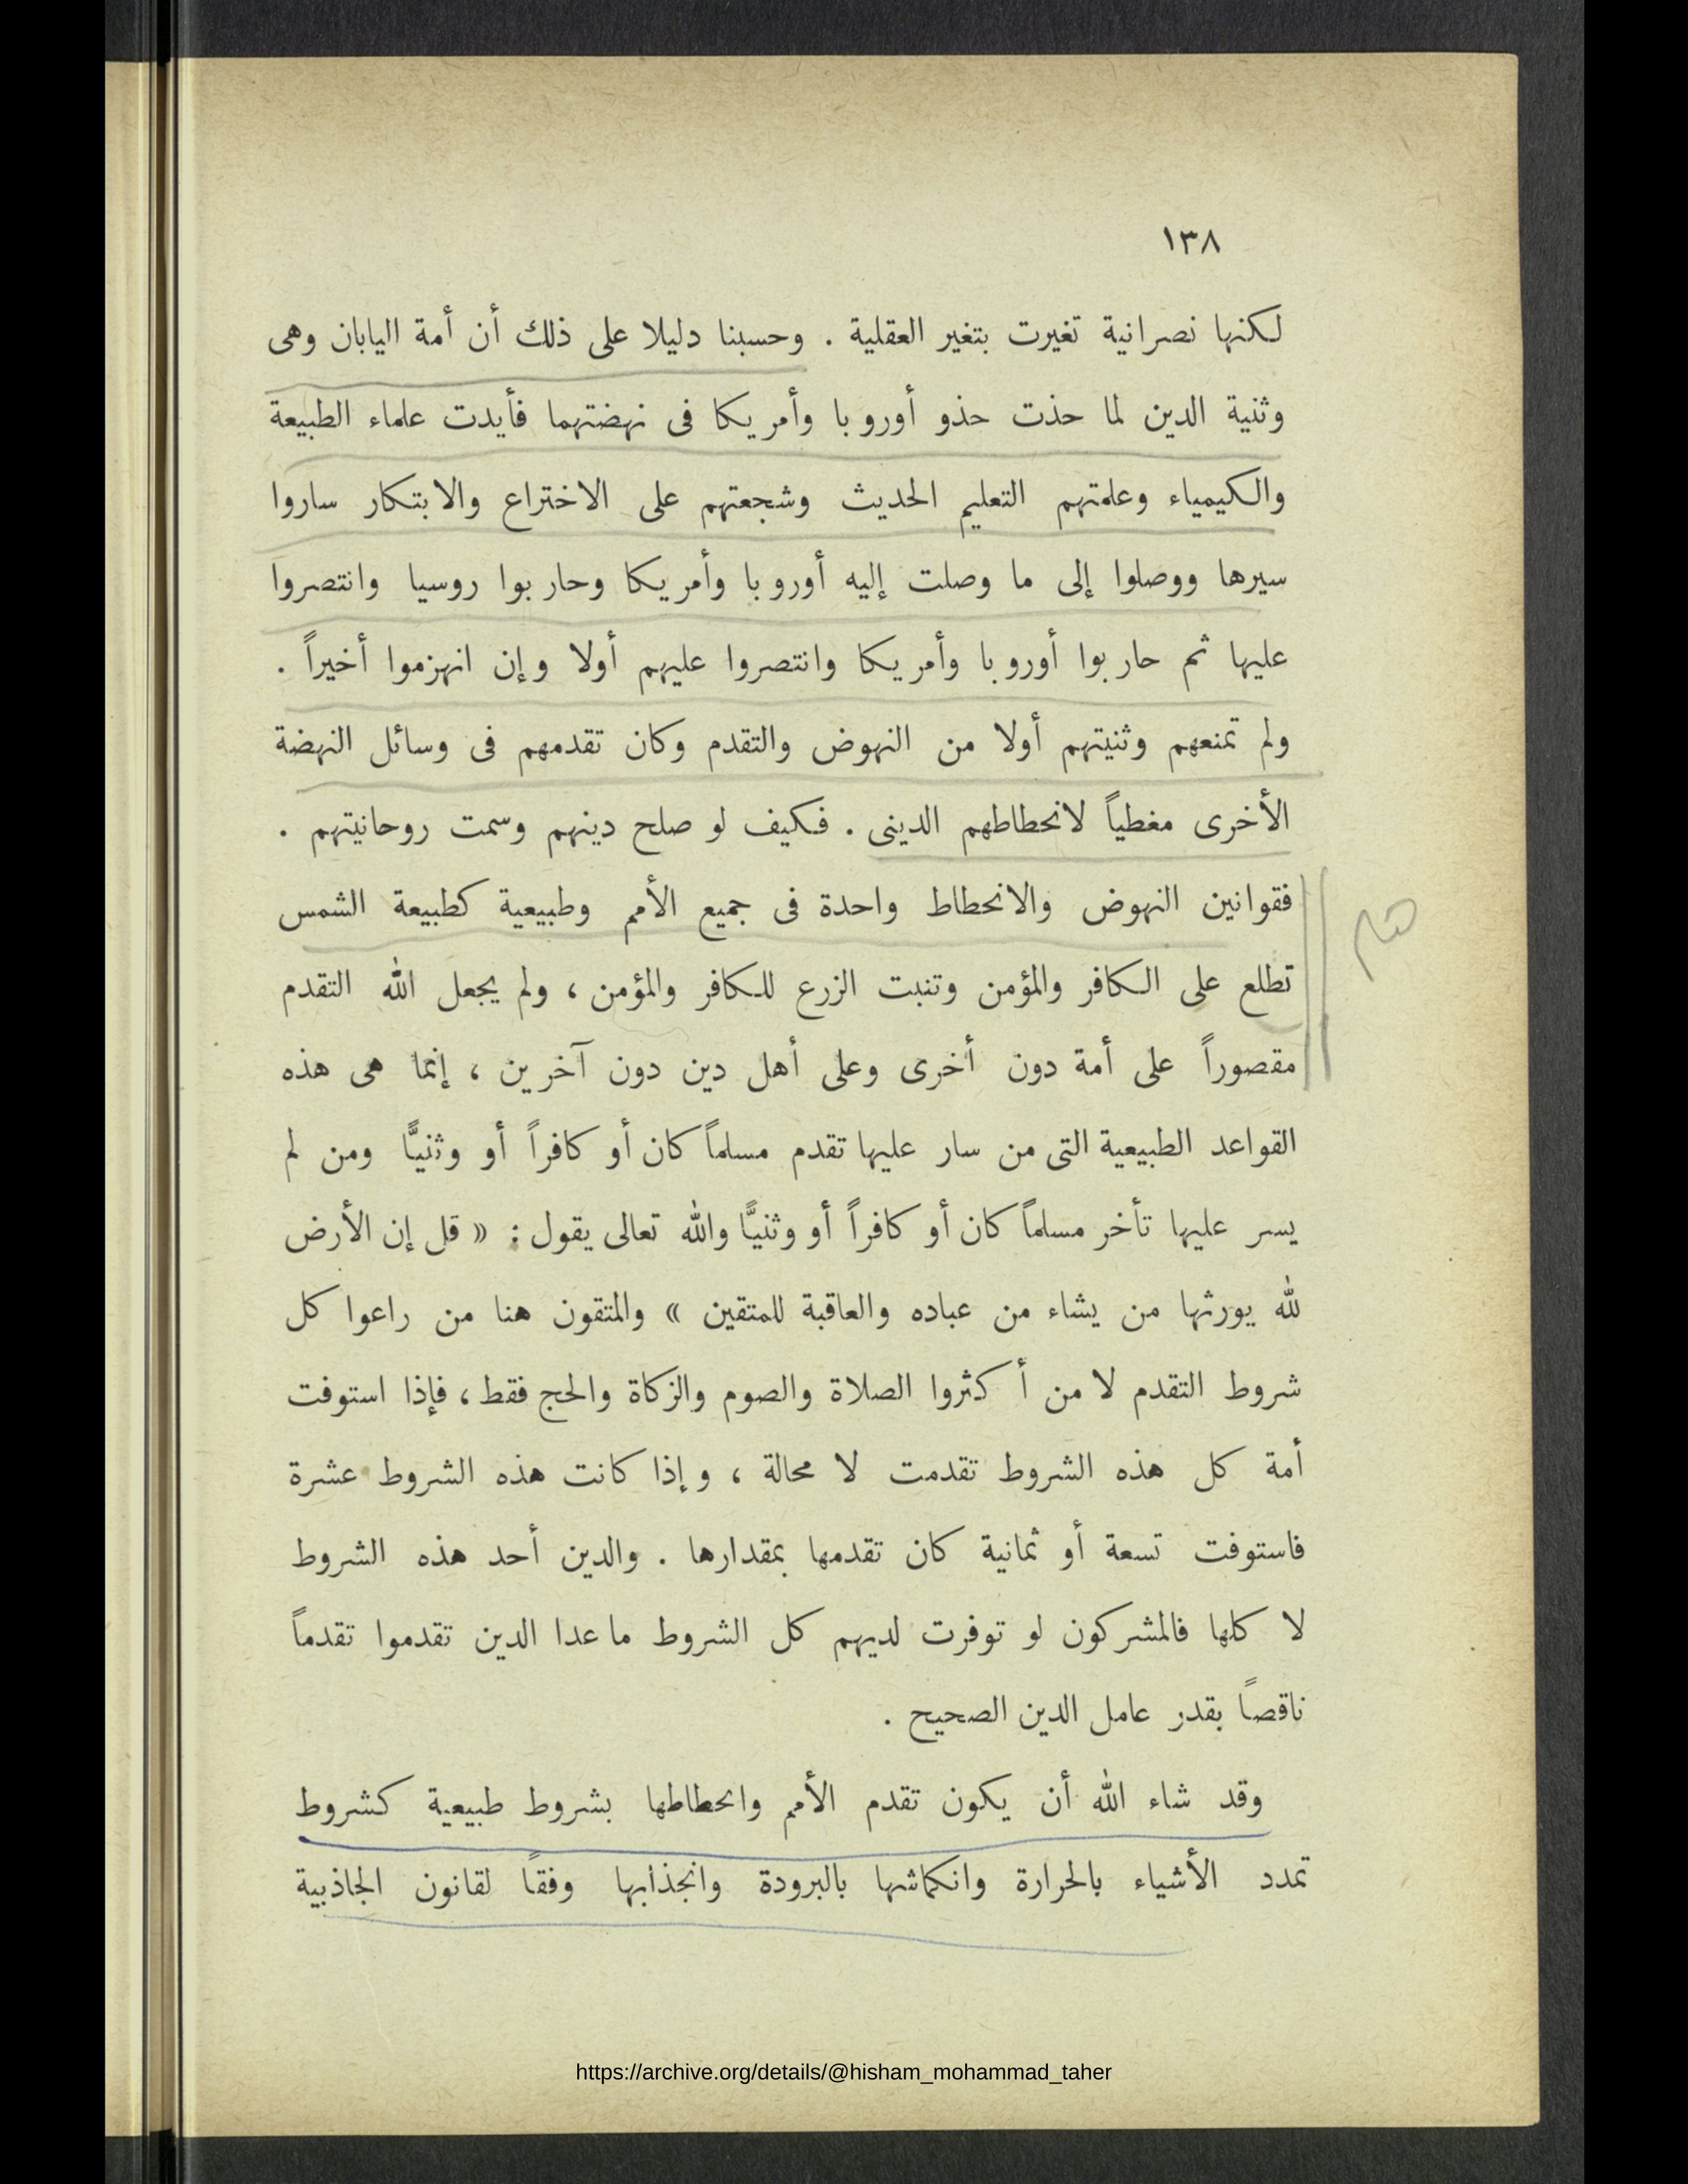 ١٣٨
لكنها نصرانية تغيرت بتغير العقلية . وحسبنا دليلا على ذلك أن أمة اليابان وهى
وثنية الدين لما حذت حذو أوروبا وأمريكا فى نهضتهما فأيدت علماء الطبيعة
والكيمياء وعلمتهم التعليم الحديث وشجعتهم على الاختراع والابتكار ساروا
سيرها ووصلوا إلى ما وصلت إليه أوروبا وأمريكا وحاربوا روسيا وانتصروا
عليها ثم حاربوا أوروبا وأمريكا وانتصروا عليهم أولا وإن انهزموا أخيراً .
ولم تمنعهم وثنيتهم أولا من النهوض والتقدم وكان تقدمهم فى وسائل النهضة
الأخرى مغطياً لانحطاطهم الدينى . فكيف لو صلح دينهم وسمت روحانيتهم .
فقوانين النهوض والانحطاط واحدة فى جميع الأمم وطبيعية كطبيعة الشمس
تطلع على الكافر والمؤمن وتنبت الزرع للكافر والمؤمن ، ولم يجعل الله التقدم
مقصوراً على أمة دون أخرى وعلى أهل دين دون آخرين ، إنما هى هذه
القواعد الطبيعية التى من سار عليها تقدم مسلماً كان أو كافراً أو وثنيًّا ومن لم
يسر عليها تأخر مسلماً كان أو كافراً أو وثنيًّا والله تعالى يقول : « قل إن الأرض
لله يورثها من يشاء من عباده والعاقبة للمتقين » والمتقون هنا من راعوا كل
شروط التقدم لا من أكثروا الصلاة والصوم والزكاة والحج فقط ، فإذا استوفت
أمة كل هذه الشروط تقدمت لا محالة ، وإذا كانت هذه الشروط عشرة
فاستوفت تسعة أو ثمانية كان تقدمها بمقدارها . والدين أحد هذه الشروط
لا كلها فالمشركون لو توفرت لديهم كل الشروط ما عدا الدين تقدموا تقدماً
ناقصاً بقدر عامل الدين الصحيح .
وقد شاء الله أن يكون تقدم الأمم وانحطاطها بشروط طبيعية كشروط
تمدد الأشياء بالحرارة وانكماشها بالبرودة وانجذابها وفقاً لقانون الجاذبية
https://archive.org/details/@hisham_mohammad_taher